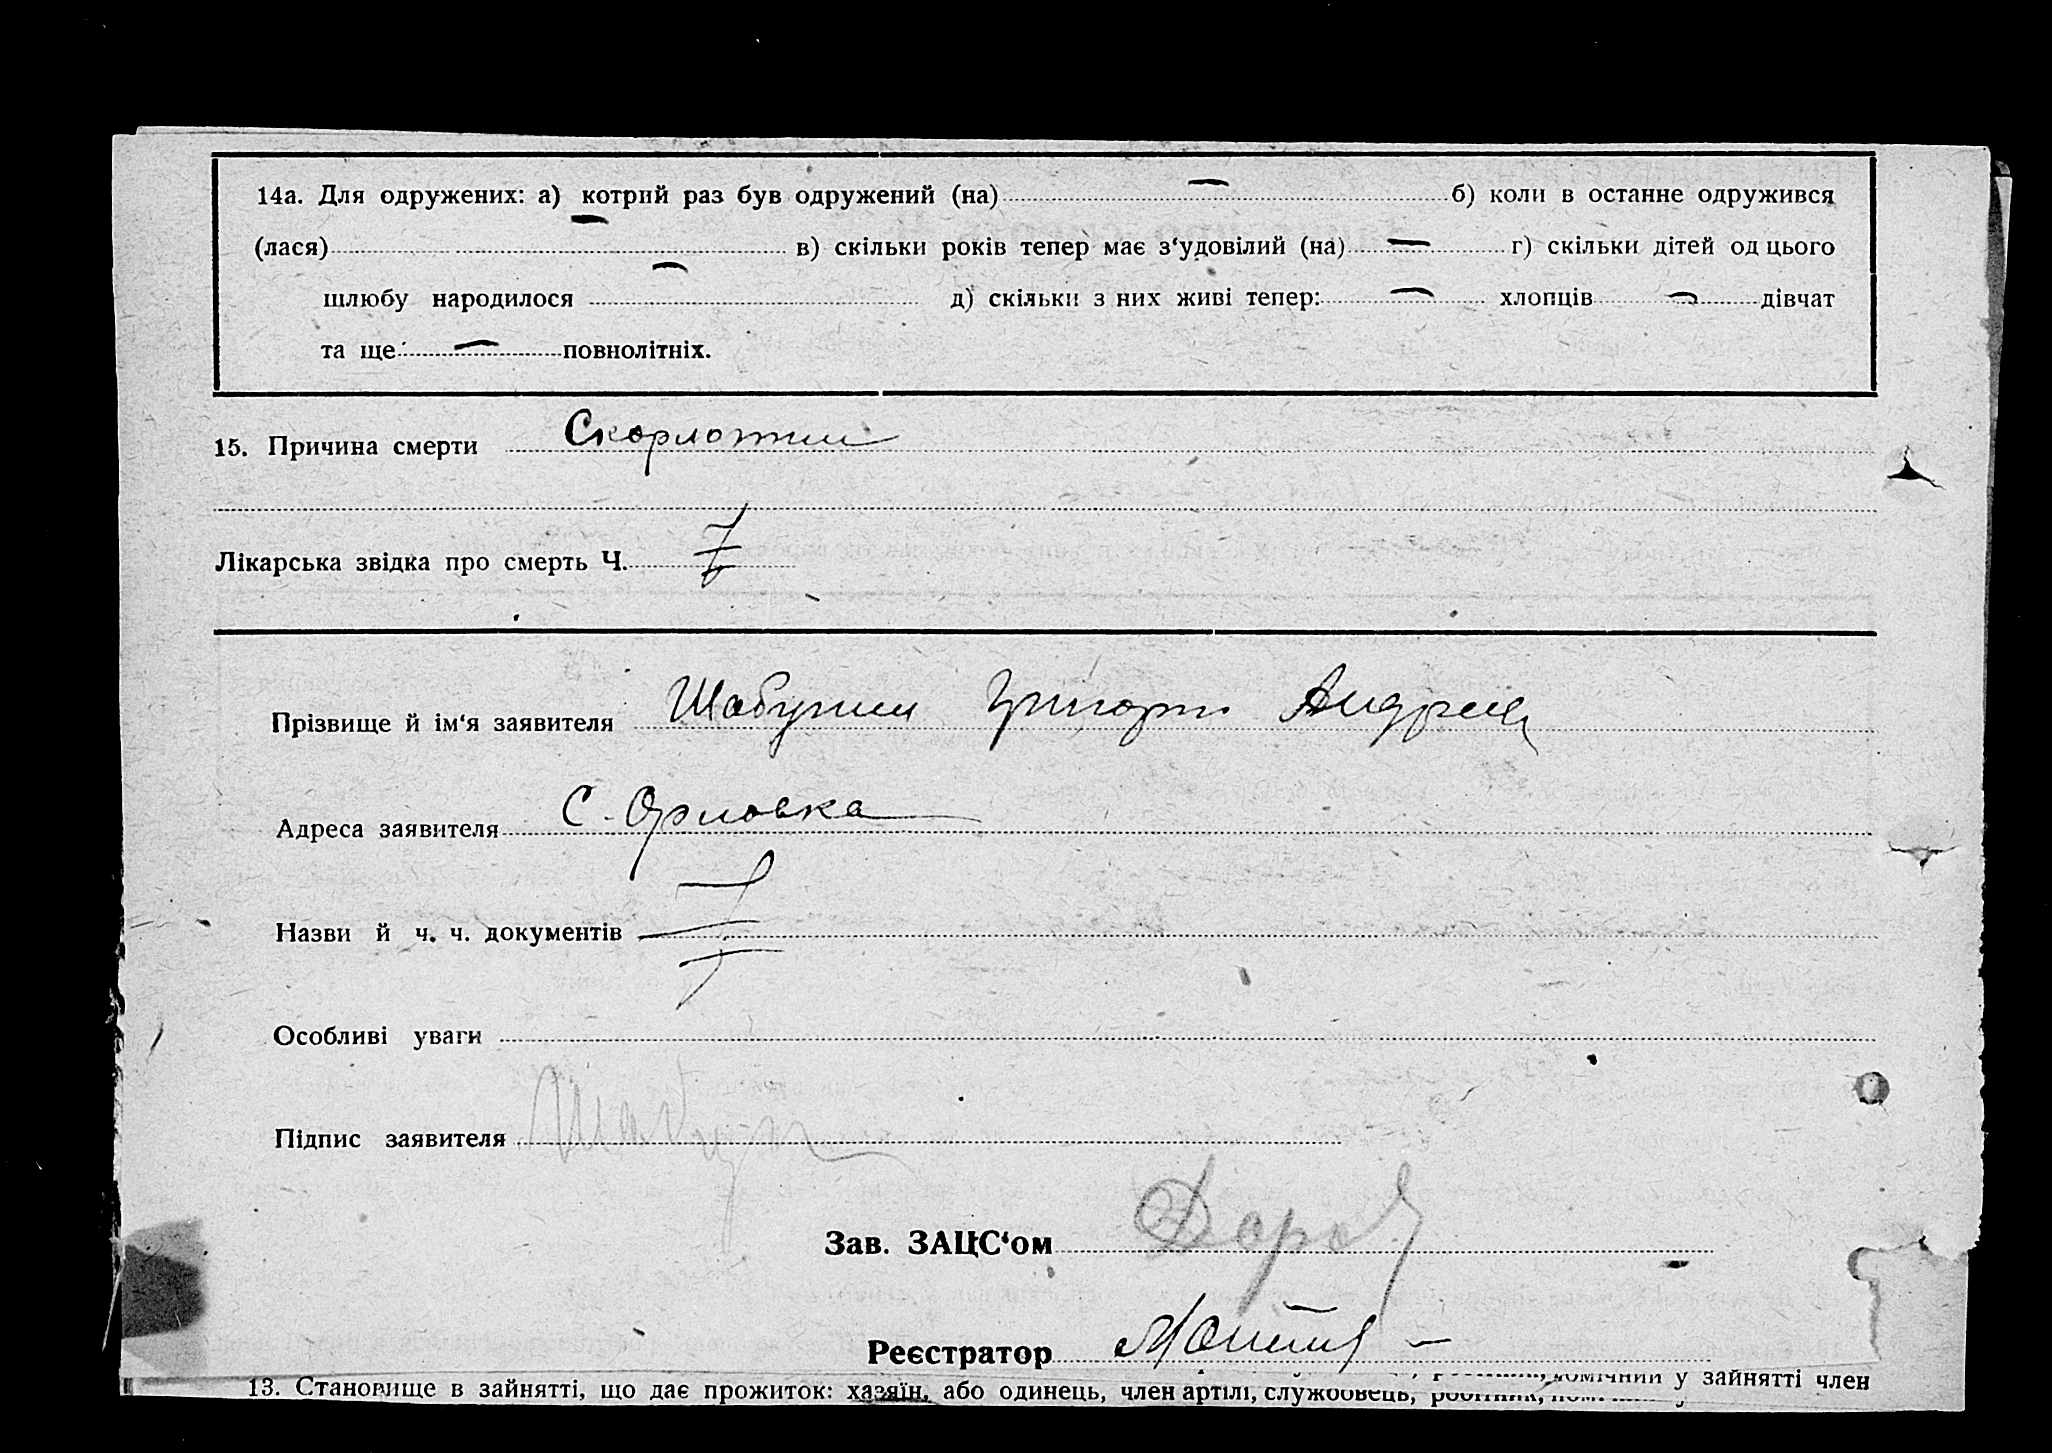 14а. Для одружених: а) котрий раз був одружений (на) — б) коли в останнє одружився
(лася) — в) скільки років тепер має з‘удовілий (на) — г) скільки дітей од цього
шлюбу народилося — д) скільки з них живі тепер: — хлопців — дівчат
та ще — повнолітніх.
15. Причина смерти Скорлотини
Лікарська звідка про смерть Ч.
Прізвище й ім‘я заявителя Шабунин Григорий Андреев
Адреса заявителя С. Орловка
Назви й ч. ч. документів
Особливі уваги
Підпис заявителя Шабунин
Зав. ЗАЦС‘ом
Реєстратор
13. Становище в зайнятті, що дає прожиток: хазяїн, або одинець, член артілі, службовець, у зайнятті член